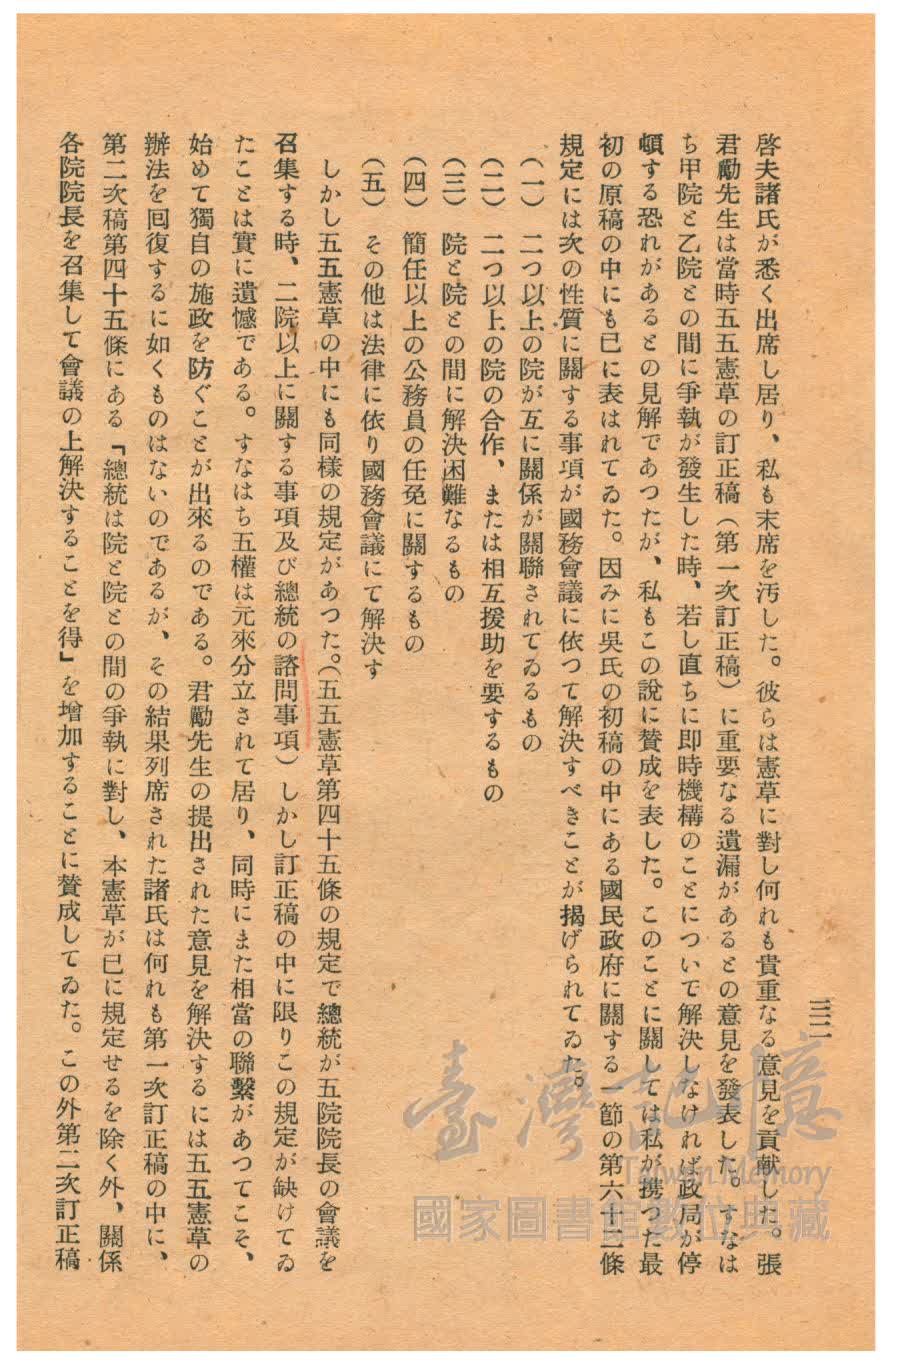 三二
啓夫諸氏が悉く出席し居り、私も末席を汚した。彼らは憲草に對し何れも貴重なる意見を貢献した。張
君勵先生は當時五五憲草の訂正稿（第一次訂正稿）に重要なる遺漏があるとの意見を發表した。すなは
ち甲院と乙院との間に爭執が發生した時、若し直ちに卽時機構のことについて解決しなければ政局が停
頓する恐れがあるとの見解であつたが、私もこの說に賛成を表した。このことに關しては私が携つた最
初の原稿の中にも已に表はれてゐた。因みに吳氏の初稿の中にある國民政府に關する一節の第六十二條
規定には次の性質に關する事項が國務會議に依つて解決すべきことが揭げられてゐた。
（一）　二つ以上の院が互に關係が關聯されてゐるもの
（二）　二つ以上の院の合作、または相互援助を要するもの
（三）　院と院との間に解決困難なるもの
（四）　簡任以上の公務員の任免に關するもの
（五）　その他は法律に依り國務會議にて解決す
しかし五五憲草の中にも同樣の規定があつた。（五五憲草第四十五條の規定で總統が五院院長の會議を
召集する時、二院以上に關する事項及び總統の諮問事項）しかし訂正稿の中に限りこの規定が缺けてゐ
たことは實に遺憾である。すなはち五權は元來分立されて居り、同時にまた相當の聯繫があつてこそ、
始めて獨自の施政を防ぐことが出來るのである。君勵先生の提出された意見を解決するには五五憲草の
辦法を回復するに如くものはないのであるが、その結果列席された諸氏は何れも第一次訂正稿の中に、
第二次稿第四十五條にある「總統は院と院との間の爭執に對し、本憲草が已に規定せるを除く外、關係
各院院長を召集して會議の上解決することを得」を增加することに賛成してゐた。この外第二次訂正稿
臺灣記憶
Taiwan Memory
國家圖書館數位典藏